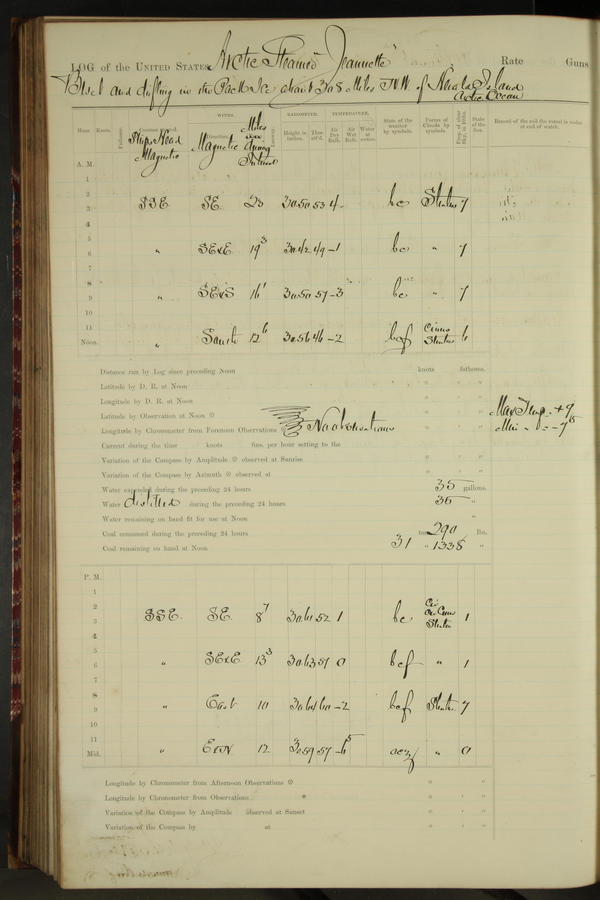 LOG of the UNITED STATES Arctic Steamer "Jeannette" Rate Guns
Beset and drifting in the Pack Ice about 308 Miles N.W. of Herald Island
Arctic Ocean
WINDS. BAROMETER. TEMPERATURE.
Hour. Knots. Fathoms. Ship's Head Magnetic Magnetic Miles Height in inches. Ther. att'd. Air Dry Bulb. Air Wet Bulb. Water at surface. State of the weather by symbols. Forms of Clouds by symbols. State of the Sea. Record of the sail the vessel is under at end of watch.
A. M.
1
2
3 SSE SE. 23 30.50 53 4 bc Stratus 7
4
5
6 " SE×E 19 3 30.42 49 -1 bc " 7
7
8
9 " SE×S 16 1 30.50 57 -3 bc " 7
10
11
Noon. " South 12 6 30.56 46 -2 bcf Cirrus Stratus 6
Distance run by Log since preceding Noon knots fathoms.
Latitude by D. R. at Noon ° ' "
Longitude by D. R. at Noon ° ' "
Latitude by Observation at Noon ° ' " Max Temp. +9
Longitude by Chronometer from Forenoon Observations No observations Min " -7 5
Current during the time knots fms. per hour setting to the
Variation of the Compass by Amplitude observed at Sunrise
Variation of the Compass by Azimuth observed at
Water expended during the preceding 24 hours 35 gallons.
Water distilled during the preceding 24 hours 36 "
Water remaining on hand fit for use at Noon "
Coal consumed during the preceding 24 hours tons 290 lbs.
Coal remaining on hand at Noon 31 " 1338 "
P. M.
1
2
3 SSE. SE. 8 7 30.61 52 1 bc Cir. Cir Cum Stratus 1
4
5
6 " SE×E 13 3 30.63 57 0 bcf " 1
7
8
9 " East 10 30.61 60 -2 bcf Stratus 7
10
11
Mid. " E×N 12 30.59 57 -6 5 " 0
Longitude by Chronometer from Afternoon Observations ° ' "
Longitude by Chronometer from Observations ° ' "
Variation of the Compass by Amplitude observed at Sunset ° ' "
Variation of the Compass by at ° ' "